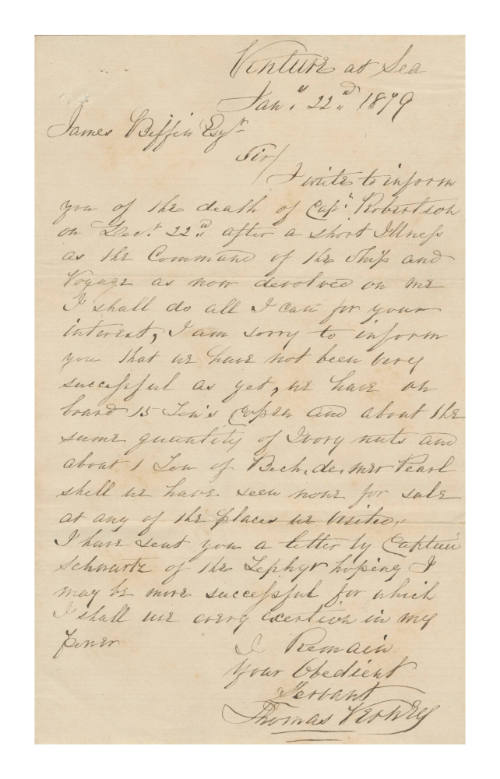 Venture at Sea
Jany 22nd 1879
James Biffin Esqr
Sir/
I write to inform
you of the death of Capn Robertson
on Decr 22nd after a short Illness
as the Command of the Ship and
Voyage as now devolved on me
I shall do all I can for your
interest, I am sorry to inform
you that we have not been very
successful as yet, we have on
board 15 Ton's Coprah and about the
same quantity of Ivory nuts and
about 1 Ton of Bech, de, mer Pearl
shell we have seen none for sale
at any of the places we visited,
I have sent you a letter by Captain
Schwartz of the Zephyr hoping I
may be more successful for which
I shall use every exertion in my
power
I Remain
Your Obedient
Servant
Thomas